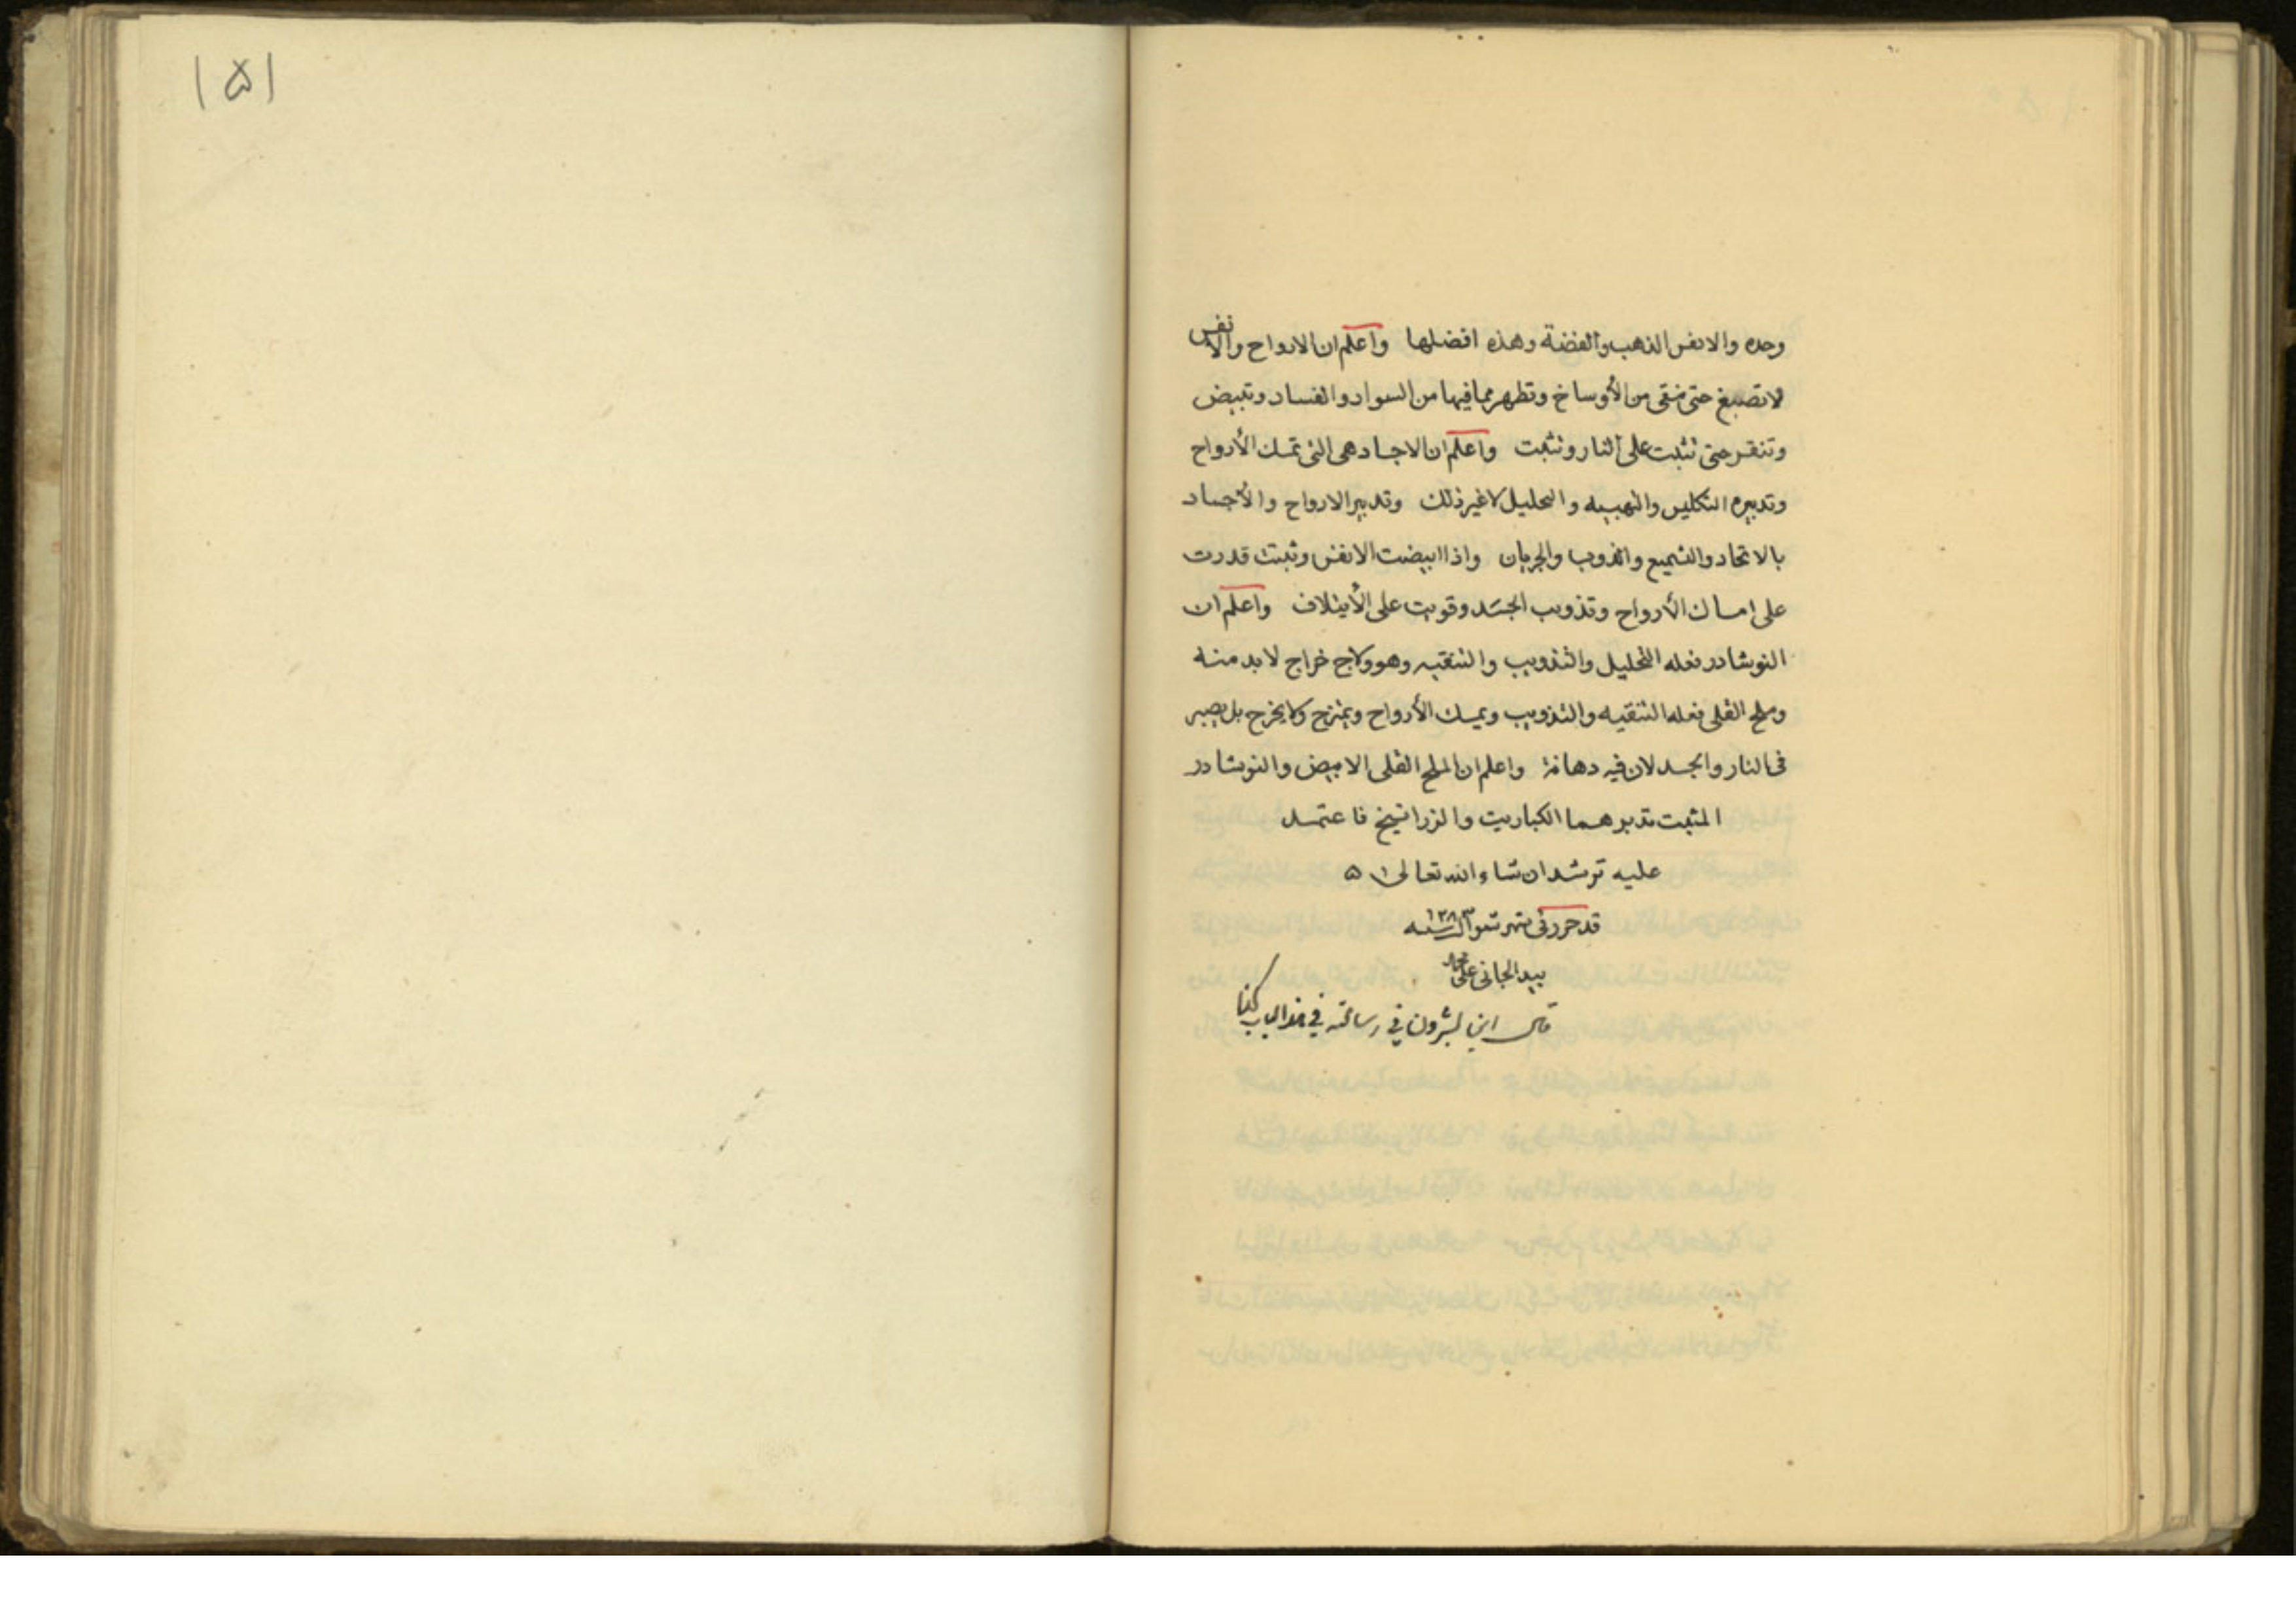 وحده والانفس الذهب والفضة وهذه افضلها واعلم ان الارواح والانفس
لا تصبغ حتى تنقى من الأوساخ وتطهر مما فيها من السواد والفساد وتبيض
وتنقر حتى تثبت على النار وتثبت واعلم ان الاجساد هي التي تمسك الأرواح
وتدبيره التكليس والتهبيه والتحليل لا غير ذلك وتدبير الارواح والأجساد
بالاتحاد والتشميع والذوب والجريان واذا ابيضت الانفس وثبتت قدرت
على امساك الأرواح وتذويب الجسد وقويت على الأيتلاف واعلم ان
النوشادر فعله التحليل والتذويب والتنقيه وهو ولاج خراج لابد منه
وملح القلى فعله التنقيه والتذويب ويمسك الأرواح ويمتزج ولا يخرج بل يصير
فى النار والجسد لان فيه دهانة واعلم ان الملح القلى الابيض والنوشادر
المثبت تدبرهما الكباريت والزرانيخ فاعتمد
عليه ترشد ان شاء الله تعالى
قد حرر فى شهر شوال سنه ١٢٨٣
بيد الجانى على محمد
قال ابن بشرون في رسالته في هذا الباب
١٥١